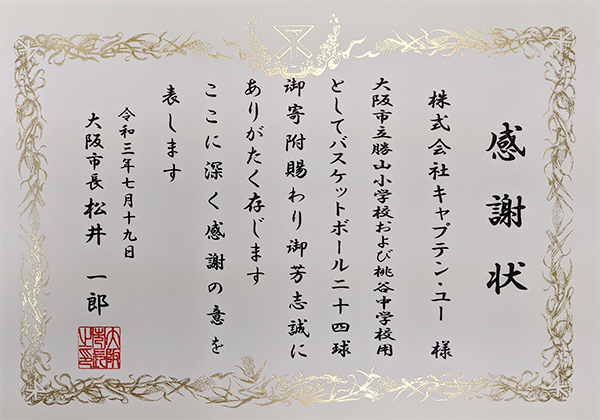 感謝状
株式会社キャプテン・ユー 様
大阪市立勝山小学校および桃谷中学校用
としてバスケットボール二十四球
御寄附賜わり御芳志誠に
ありがたく存じます
ここに深く感謝の意を
表します
令和三年七月十九日
大阪市長 松井 一郎
大阪市長之印